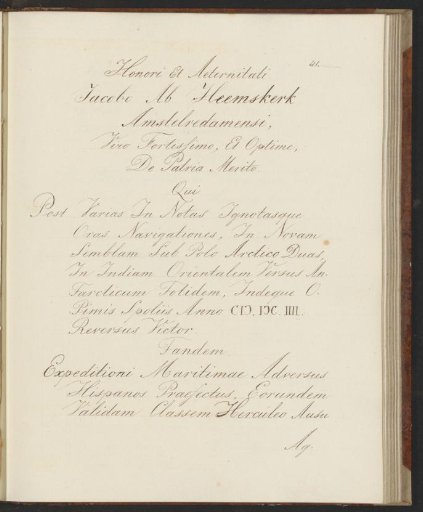 41.
Honori Et Aeternitati
Jacobo Ab Heemskerk
Amstelredamensi,
Viro Fortissimo, Et Optimo,
De Patria Merito.
Qui
Post Varias In Notas Ignotasque
Oras Navigationes, In Novam
Semblam Sub Polo Arctico Duas,
In Indiam Orientalem Versus An-
Farcticum Totidem, Indeque O-
Pimis Spoliis Anno CIↃ, IↃC. IIII.
Reversus Victor
Tandem
Expeditioni Maritimae Adversus
Hispanos Praefectus, Eorundem
Validam Classem Herculeo Ausu
Ag.